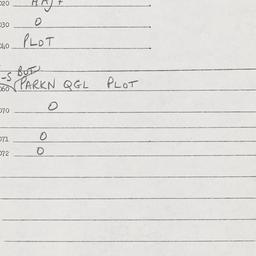 020
030 0
040 PLOT
-S BUT
060 PARKN QGL PLOT
070 0
071 0
072 0